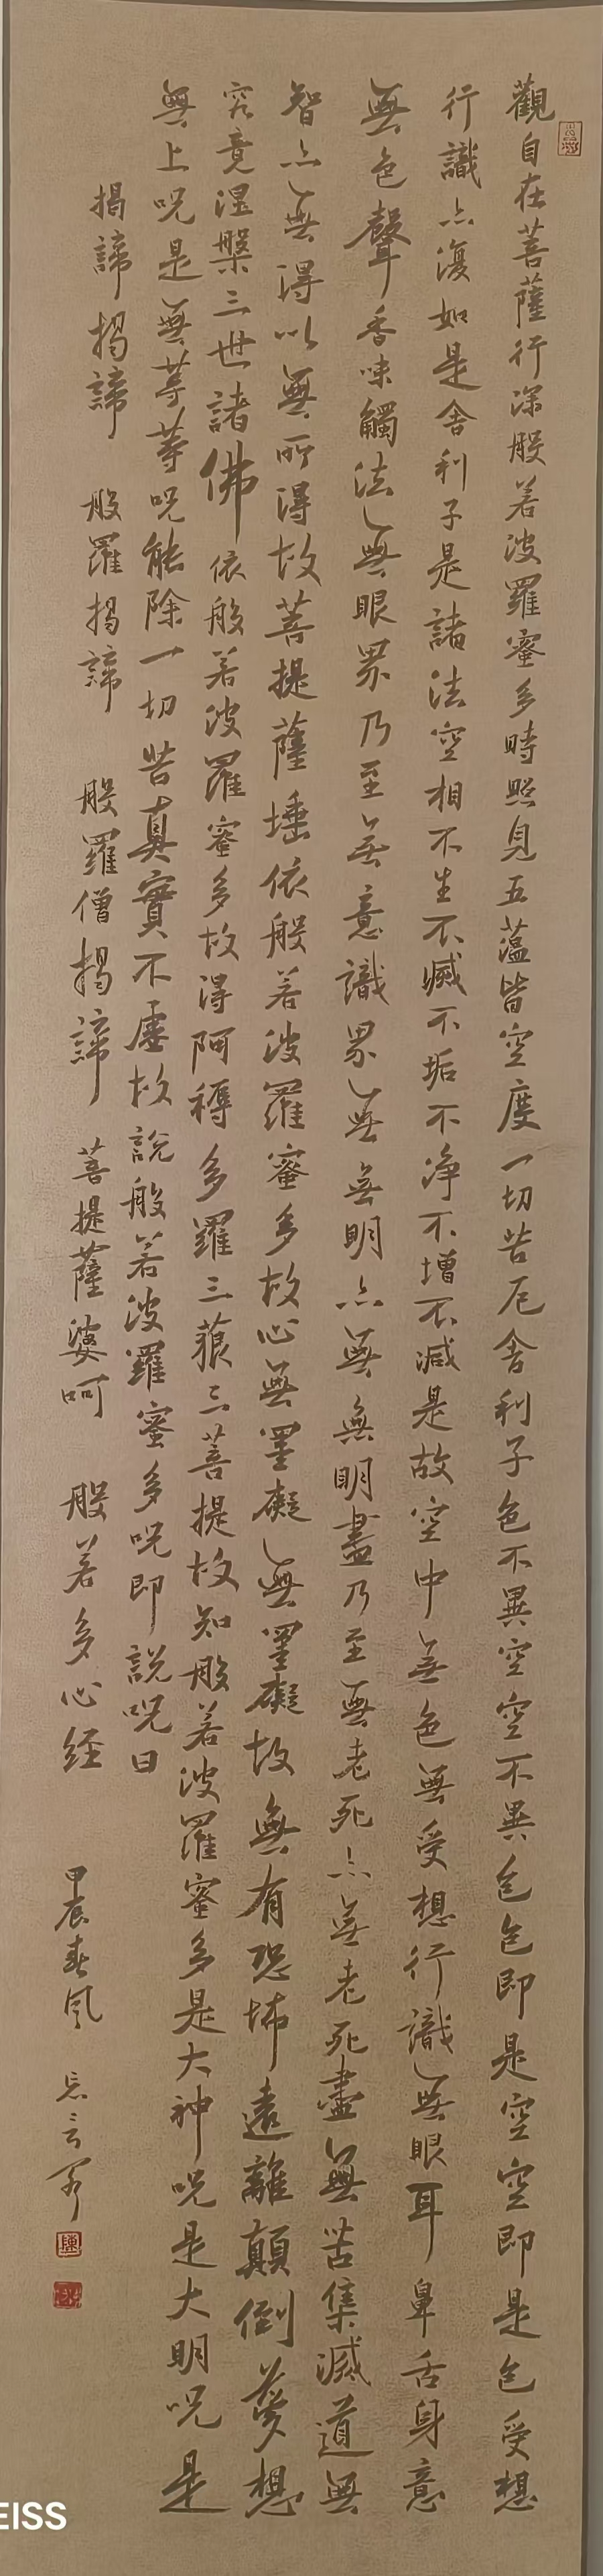 觀自在菩薩行深般若波羅蜜多時照見五蘊皆空度一切苦厄舍利子色不異空空不異色色即是空空即是色受想
行識亦復如是舍利子是諸法空相不生不滅不垢不净不增不減是故空中無色無受想行識無眼耳鼻舌身意
無色聲香味觸法無眼界乃至無意識界無無明亦無無明盡乃至無老死亦無老死盡無苦集滅道無
智亦無得以無所得故菩提薩埵依般若波羅蜜多故心無罣礙無罣礙故無有恐怖遠離顛倒夢想
究竟涅槃三世諸佛依般若波羅蜜多故得阿耨多羅三藐三菩提故知般若波羅蜜多是大神咒是大明咒是
無上咒是無等等咒能除一切苦真實不虛故說般若波羅蜜多咒即說咒曰
揭諦揭諦 般羅揭諦 般羅僧揭諦 菩提薩婆呵 般若多心経
甲辰春風 忘言
EISS